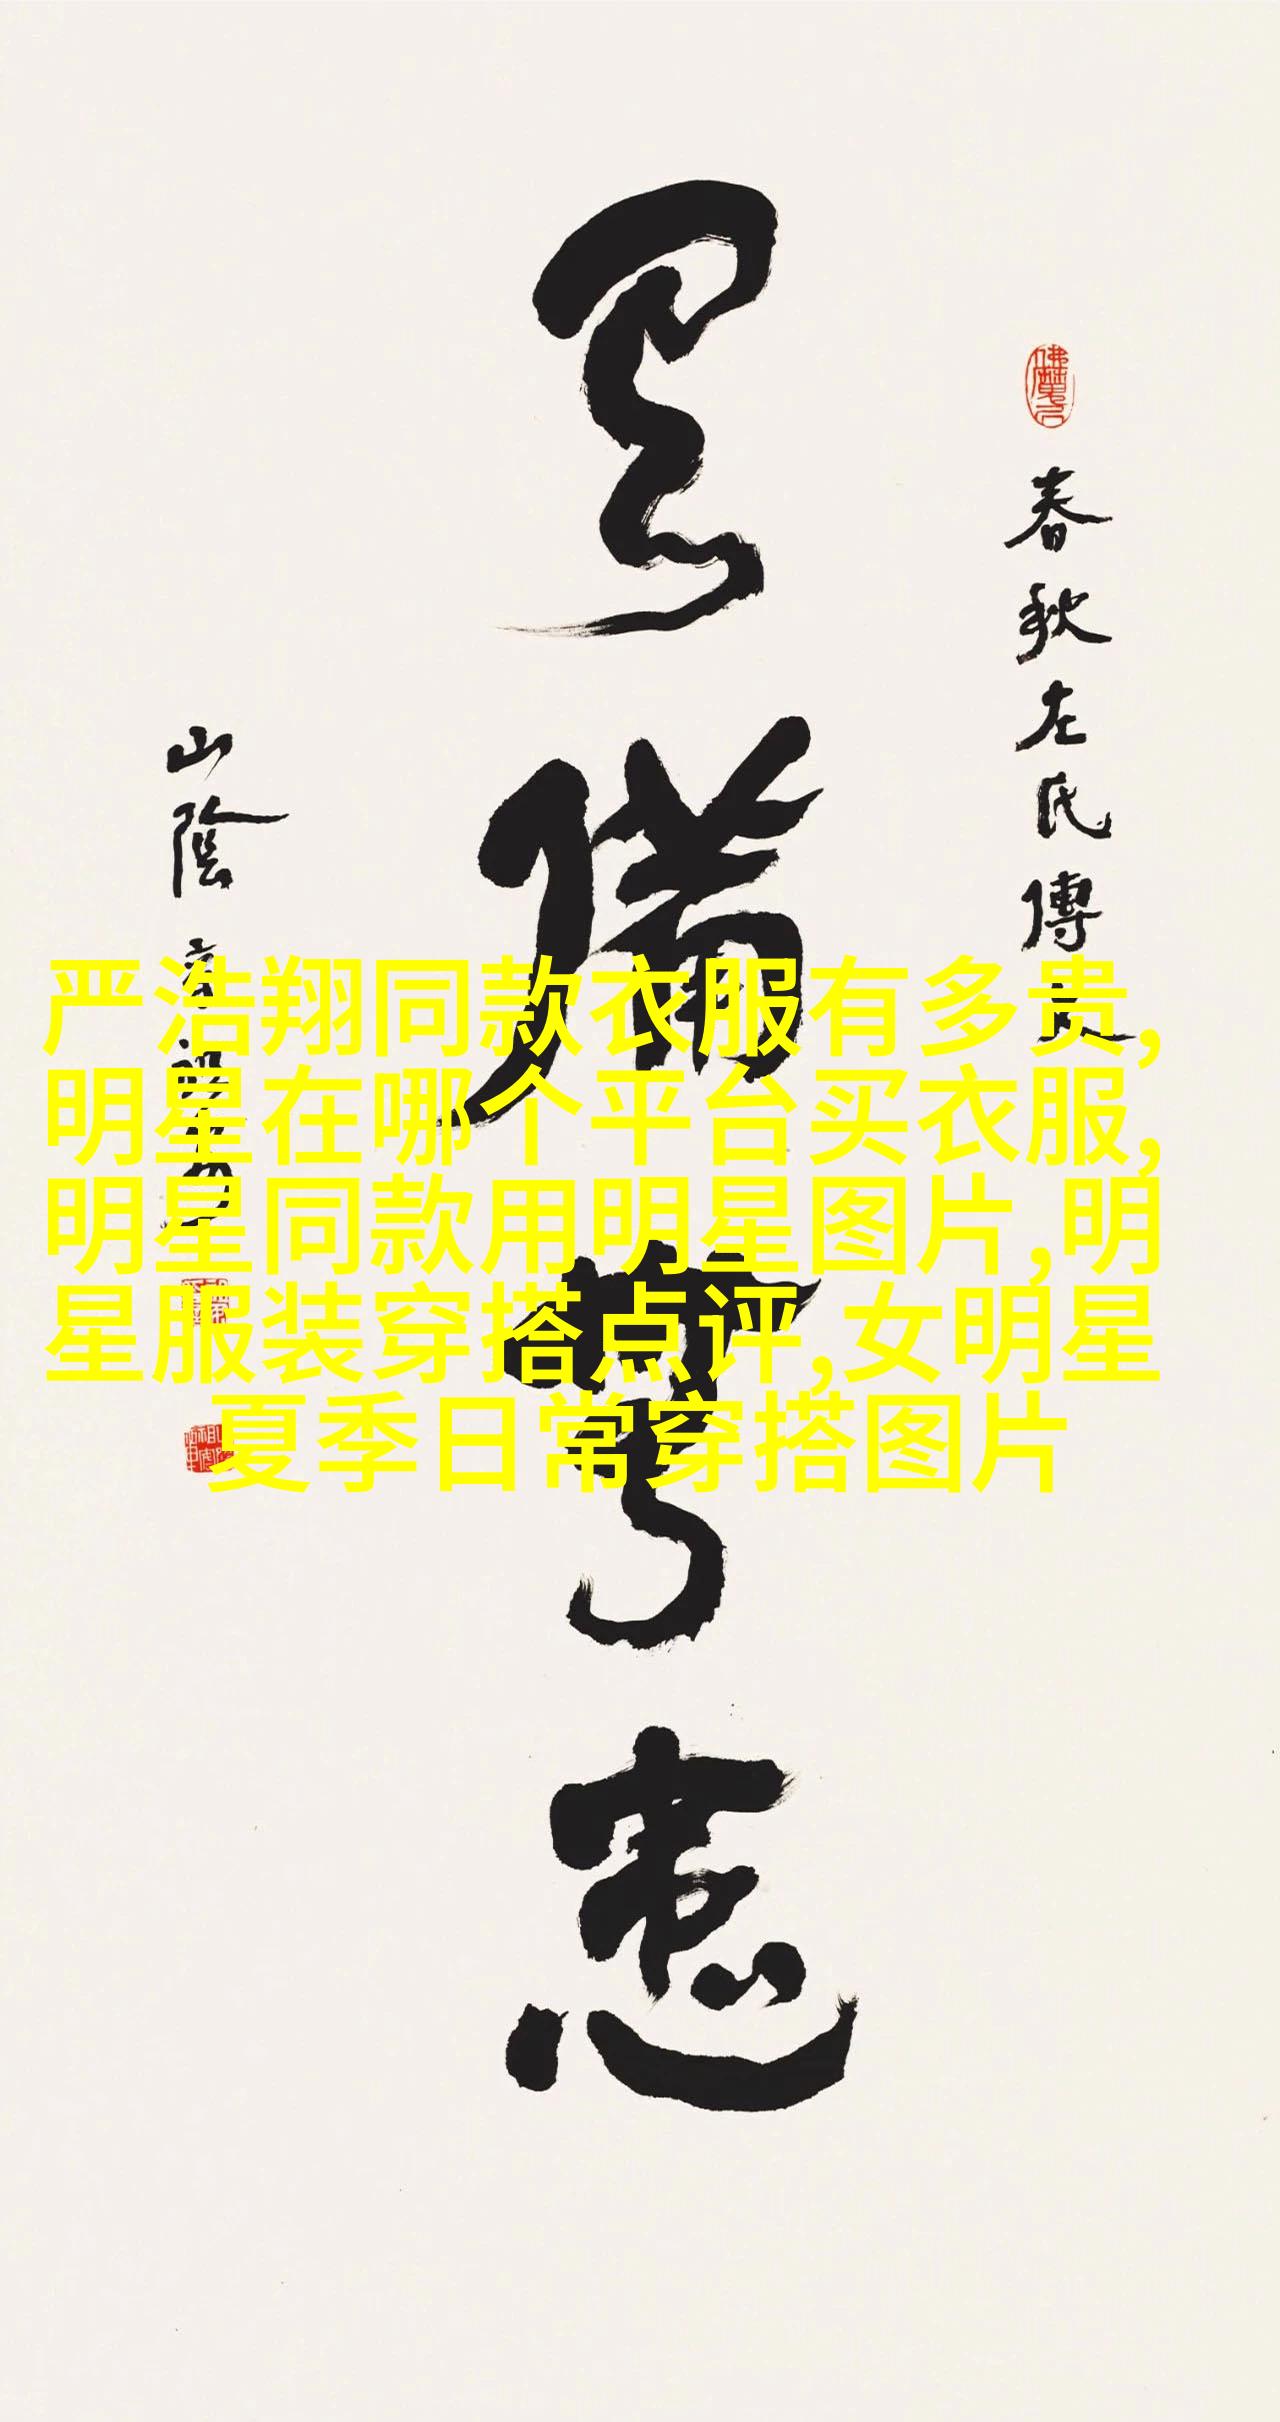 春秋左氏傳
有備無患
山陰
严浩翔同款衣服有多贵,
明星在哪个平台买衣服,
明星同款用明星图片,明
星服装穿搭点评,女明星
夏季日常穿搭图片